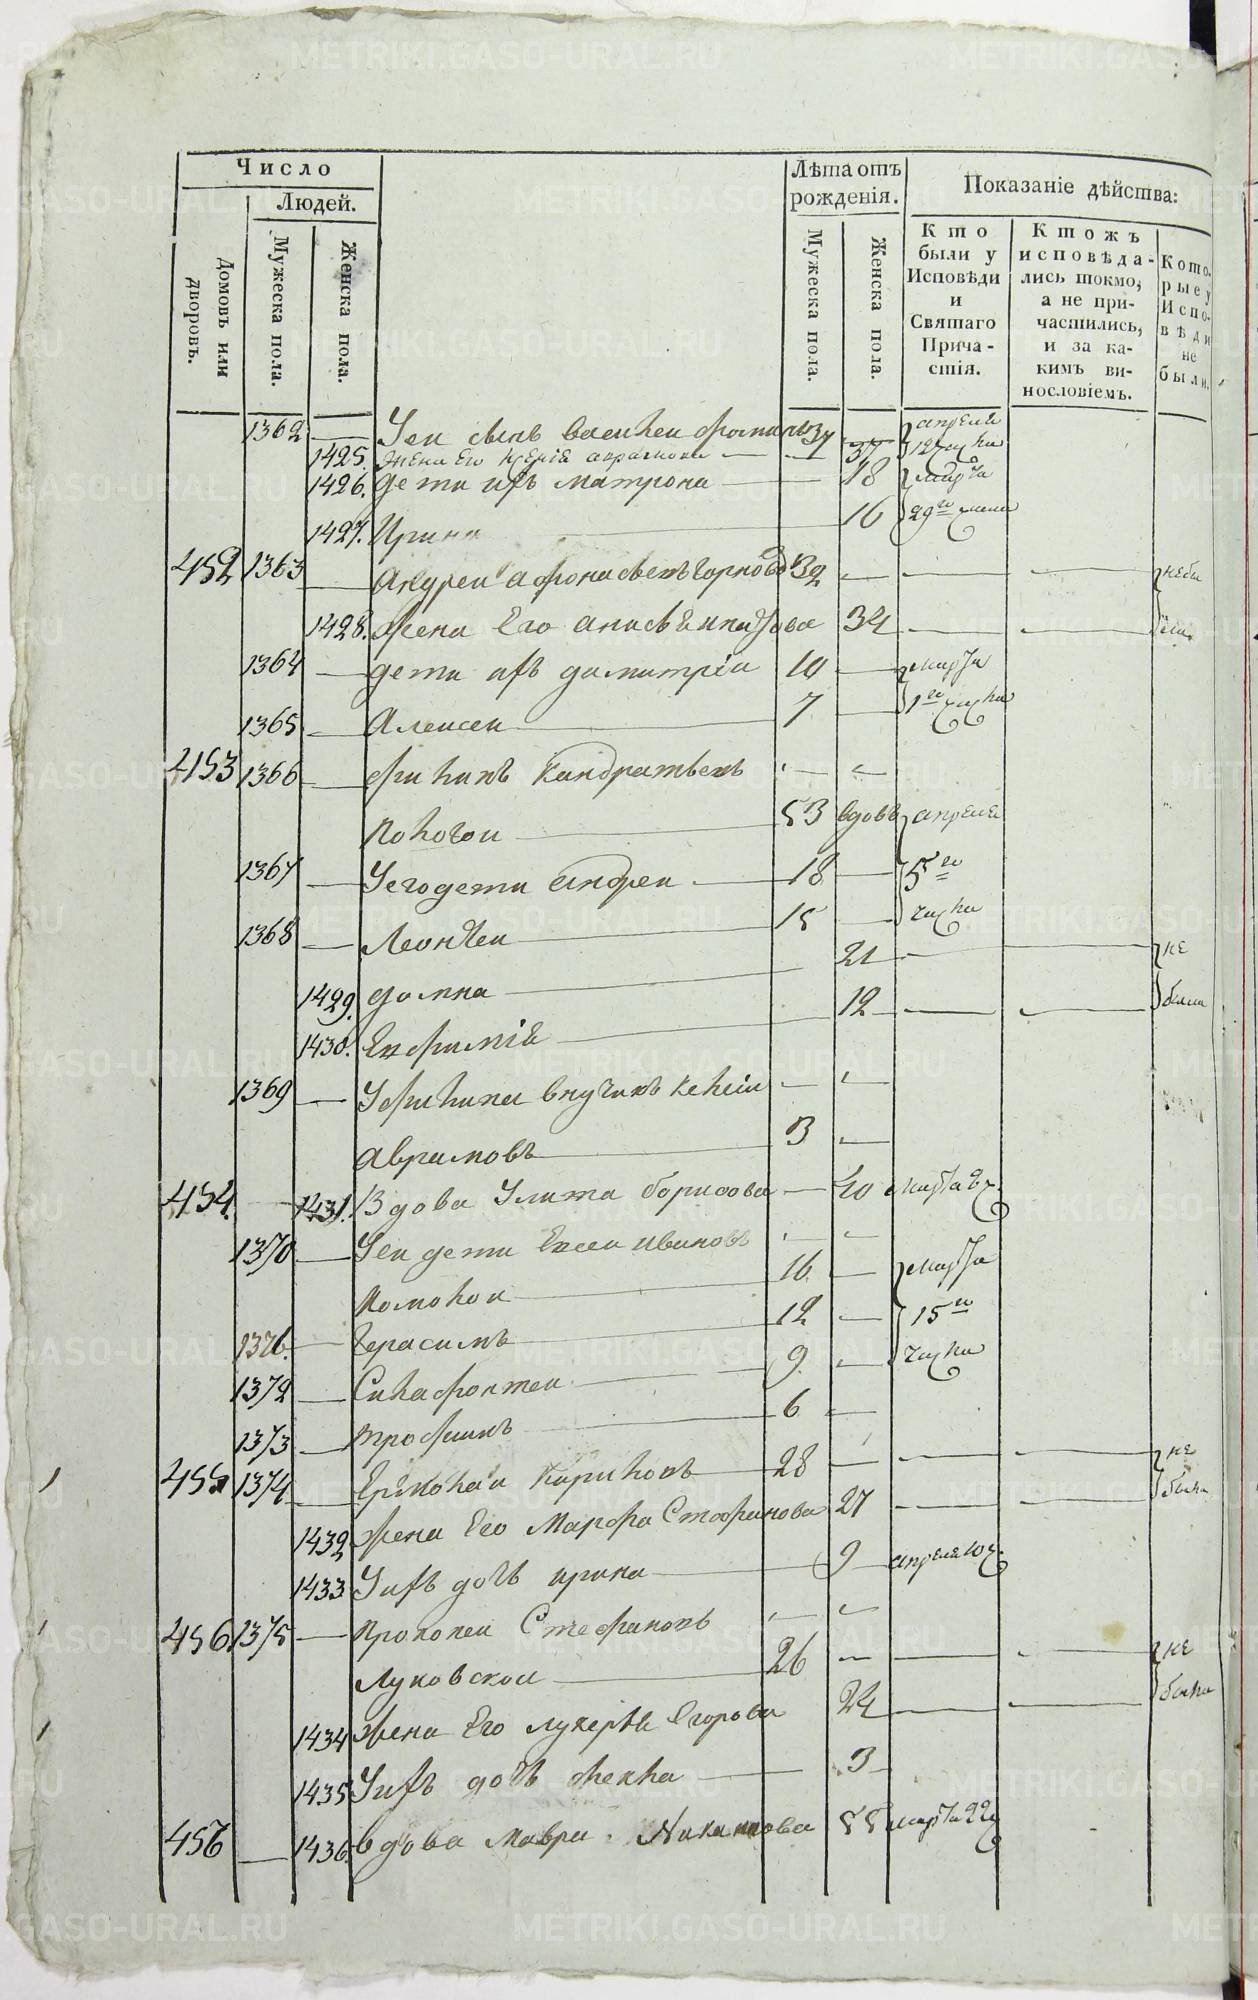 Число
Людей.
Домовъ или дворовъ.
Мужеска пола.
Женска пола.
Лѣта отъ рожденія.
Мужеска пола.
Женска пола.
Показаніе дѣйства:
Кто были у Исповѣди и Святаго Причастія.
Ктожъ исповѣдались токмо, а не причастились, и за какимъ винословіемъ.
Которые у Исповѣди не были.
1362 Уеи сынъ василеи 34 апреля
1425. жена его аврамова 37 12 числа
1426. дети ихъ матрона 18 марта
1427. Ирина 16 29го числа
452 1363 Андреи афонасьевъ 32 небы
1428. жена Его 34 ли
1364 дети ихъ димитрiи 10 марта
1365 Алексеи 7 1го числа
453 1366 филипъ Кандратьевъ
53 вдовъ апреля
1367 Уегодети андреи 18 5го
1368 Леонтеи 15 числа
1429. домна 21 не
1430. Евфимiя 12 были
1369 Уфилипа внучикъ
аврамовъ 3
454. 1431. Вдова Улита борисова 40 марта
1370 Уеи дети Евсеи ивановъ
16 марта
1376. Герасимъ 12 15го
1372 9 числа
1373 трофимъ 6
455 1374 Ермолаи Кариловъ 28 не
1432 жена Его Марфа Стефанова 27 были
1433 Уихъ дочь ирина 9 апреля 10 ч.
456 1375 прокопеи Стефановъ
Луковскои 26 не
1434 жена Его лукерья Егорова 24 были
1435 Уихъ дочь фекла 3
457 1436. вдова мавра 55 марта 22 ч
METRIKI.GASO-URAL.RU